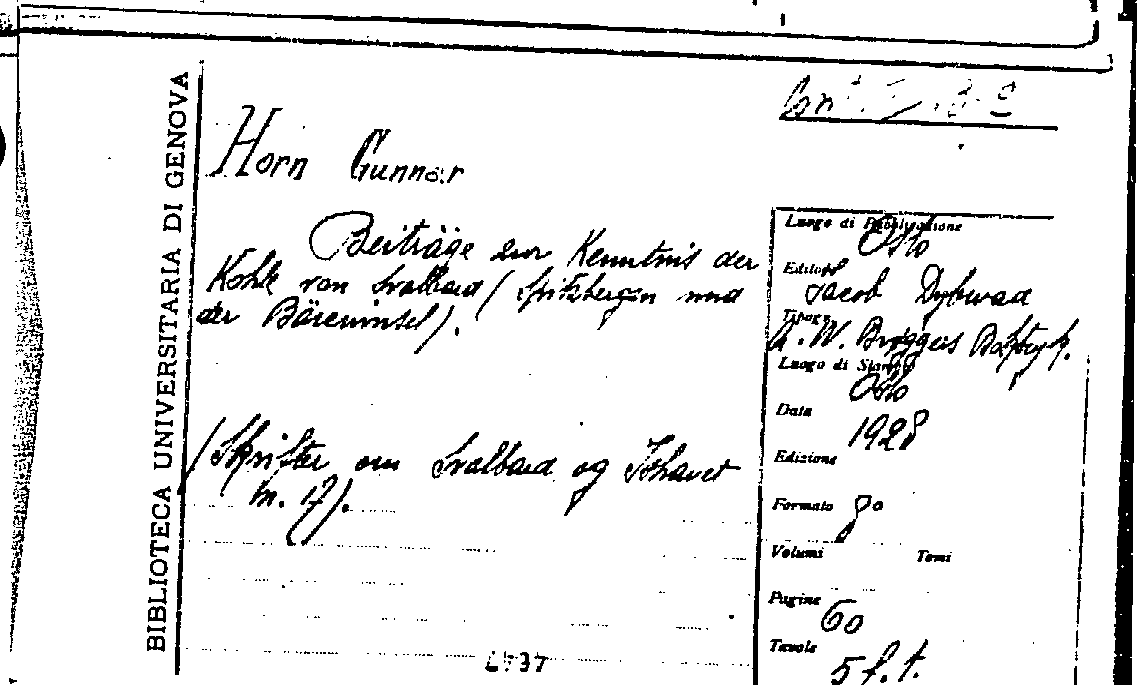 BIBLIOTECA UNIVERSITARIA DI GENOVA
Horn Gunnar
Beiträge zur Kenntnis der
Kohle von Svalbard (Spitzbergen und
der Bäreninsel).
(Skrifter om Svalbard og Ishavet
n. 17).
Luogo di Pubblicazione
Oslo
Editore
Jacob Dybwad
Tipogr.
A. W. Brøggers
Luogo di Stampa
Oslo
Data
1928
Edizione
Formato 8°
Volumi Tomi
Pagine
60
Tavole
5 f. t.